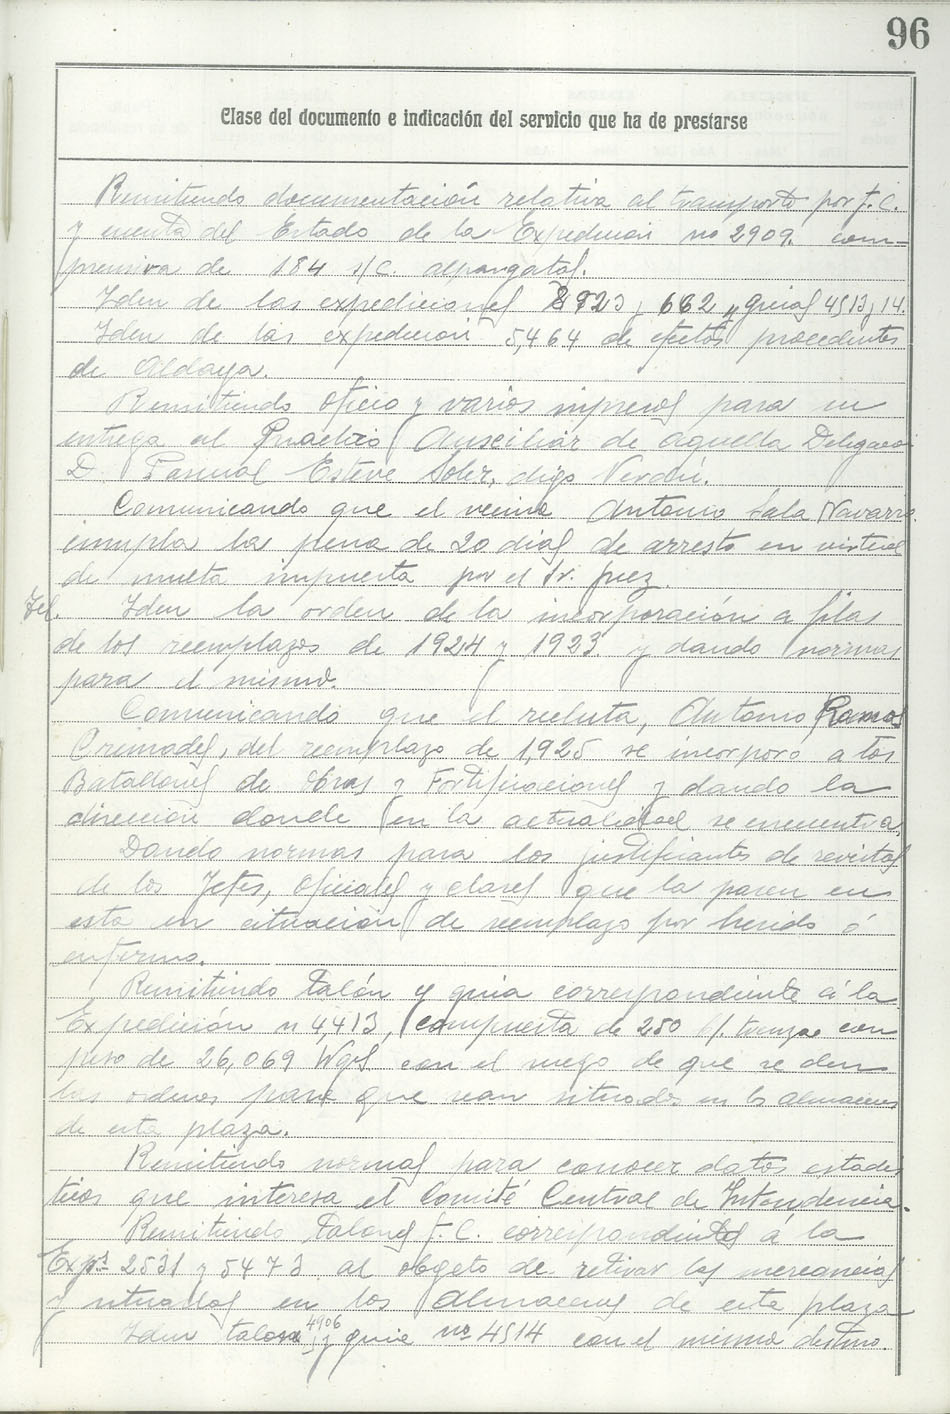 96
Clase del documento e indicación del servicio que ha de prestarse
Remitiendo documentación relativa al transporte por f. C.
y cuenta del Estado de la Expedición nº 2909. com-
prensiva de 184 s/c. alpargatas.
Iden de las expediciones 2823 y 662 y guias 4513 y 14.
Iden de las expedición 5,464 de efectos procedentes
de Aldaya.
Remitiendo oficio y varios impresos para su
entrega al Practico Auxciliar de aquella Delegación
D. Pascual Esteve Soler, digo Verdú.
Comunicando que el vecino Antonio Sala Navarro
cumpla la pena de 20 dias de arresto en virtud
de multa impuesta por el Sr. Juez.
Tel. Iden la orden de la incorporación a filas
de los reemplazos de 1924 y 1923 y dando normas
para el mismo.
Comunicando que el recluta, Antonio Ramos
Crimades, del reemplazo de 1,925 se incorporo a los
Batallones de Obras y Fortificaciones y dando la
dirección donde en la actualidad se encuentra.
Dando normas para los justificantes de revistas
de los Jefes, Oficiales y clases que la pasen en
esta en situación de reemplazo por herido ó
enfermo.
Remitiendo talón y guia correspondiente á la
Expedición n 4,413, compuesta de 250 con
peso de 26,069 Kgs. con el ruego de que se den
las ordenes para que sean situados en los almacenes
de esta plaza.
Remitiendo normas para conocer datos estadis
ticos que interesa el Comité Central de Intendencia.
Remitiendo talones f. C. correspondientes á la
Exps 2531 y 5473 al obgeto de retirar las mercancias
y situarlas en los Almacenes de esta plaza
Iden talon 4906 y guia nº 4514 con el mismo destino.